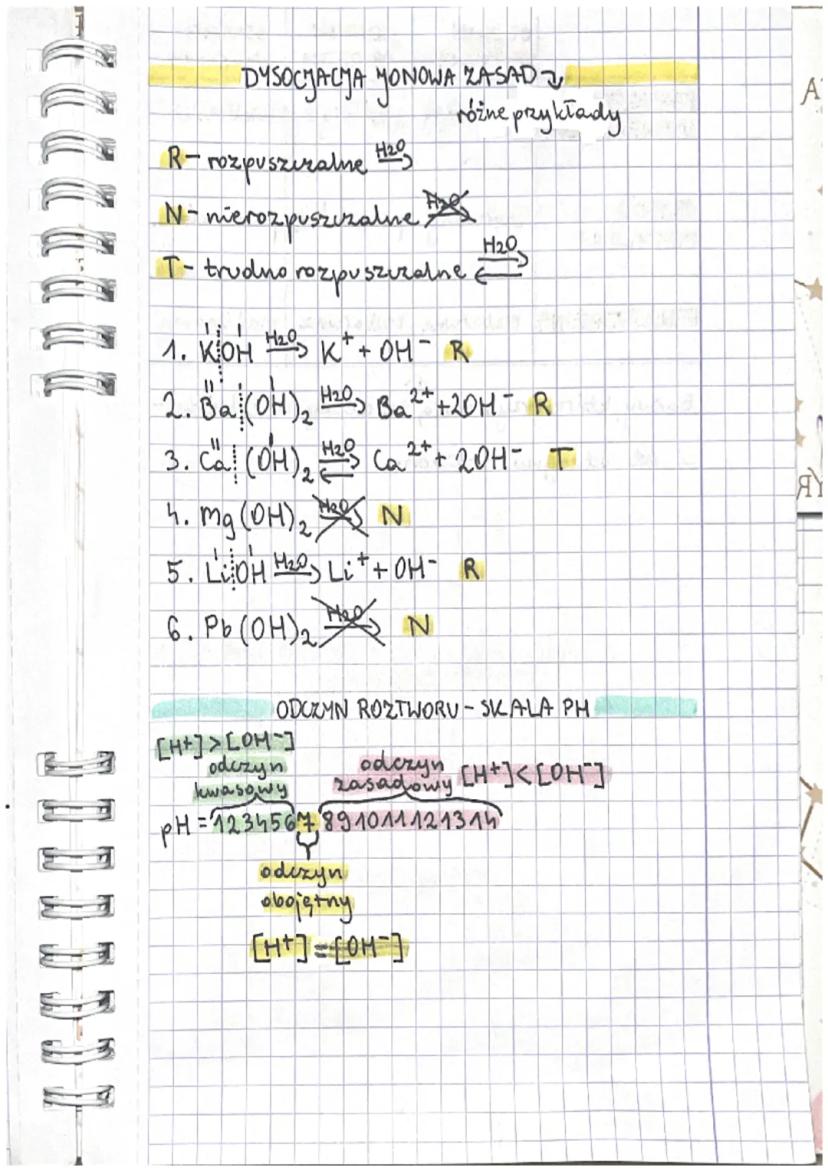 DYSOCJACJA JONOWA ZASAD ↘
różne przykłady
R - rozpuszczalne H2O→
N - nierozpuszczalne H2O→
T - trudno rozpuszczalne H2O⇄
1. K¦OH H2O→ K⁺ + OH⁻ R
2. Ba¦(OH)₂ H2O→ Ba²⁺ + 2OH⁻ R
3. Ca¦(OH)₂ H2O⇄ Ca²⁺ + 2OH⁻ T
4. Mg(OH)₂ H2O→ N
5. Li¦OH H2O→ Li⁺ + OH⁻ R
6. Pb(OH)₂ H2O→ N
ODCZYN ROZTWORU - SKALA PH
[H⁺] > [OH⁻]
odczyn kwasowy
odczyn zasadowy [H⁺] < [OH⁻]
pH = 1 2 3 4 5 6 7 8 9 10 11 12 13 14
odczyn
obojętny
[H⁺] = [OH⁻]